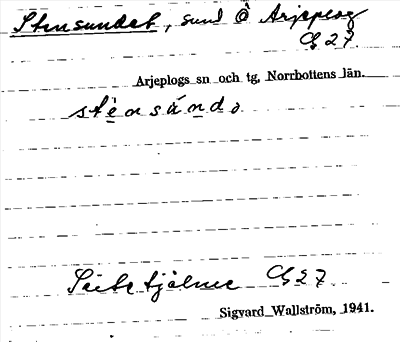 Stensundet, sund Ö Arjeplog
C 27.
Arjeplogs sn och tg, Norrbottens län.
stensúndo
C 27.
Sigvard Wallström, 1941.